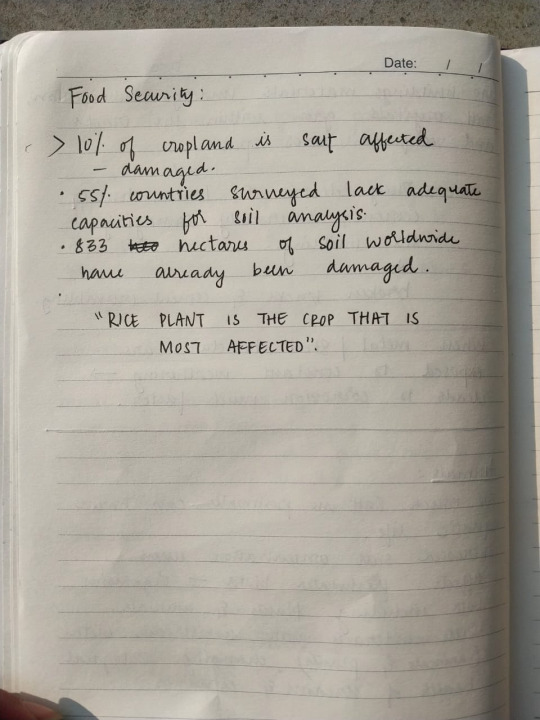 Date: / /
Food Security:
> 10% of cropland is salt affected
– damaged.
· 55% countries surveyed lack adequate
capacities for soil analysis.
· 833 hectares of soil worldwide
have already been damaged.
"RICE PLANT IS THE CROP THAT IS
MOST AFFECTED".